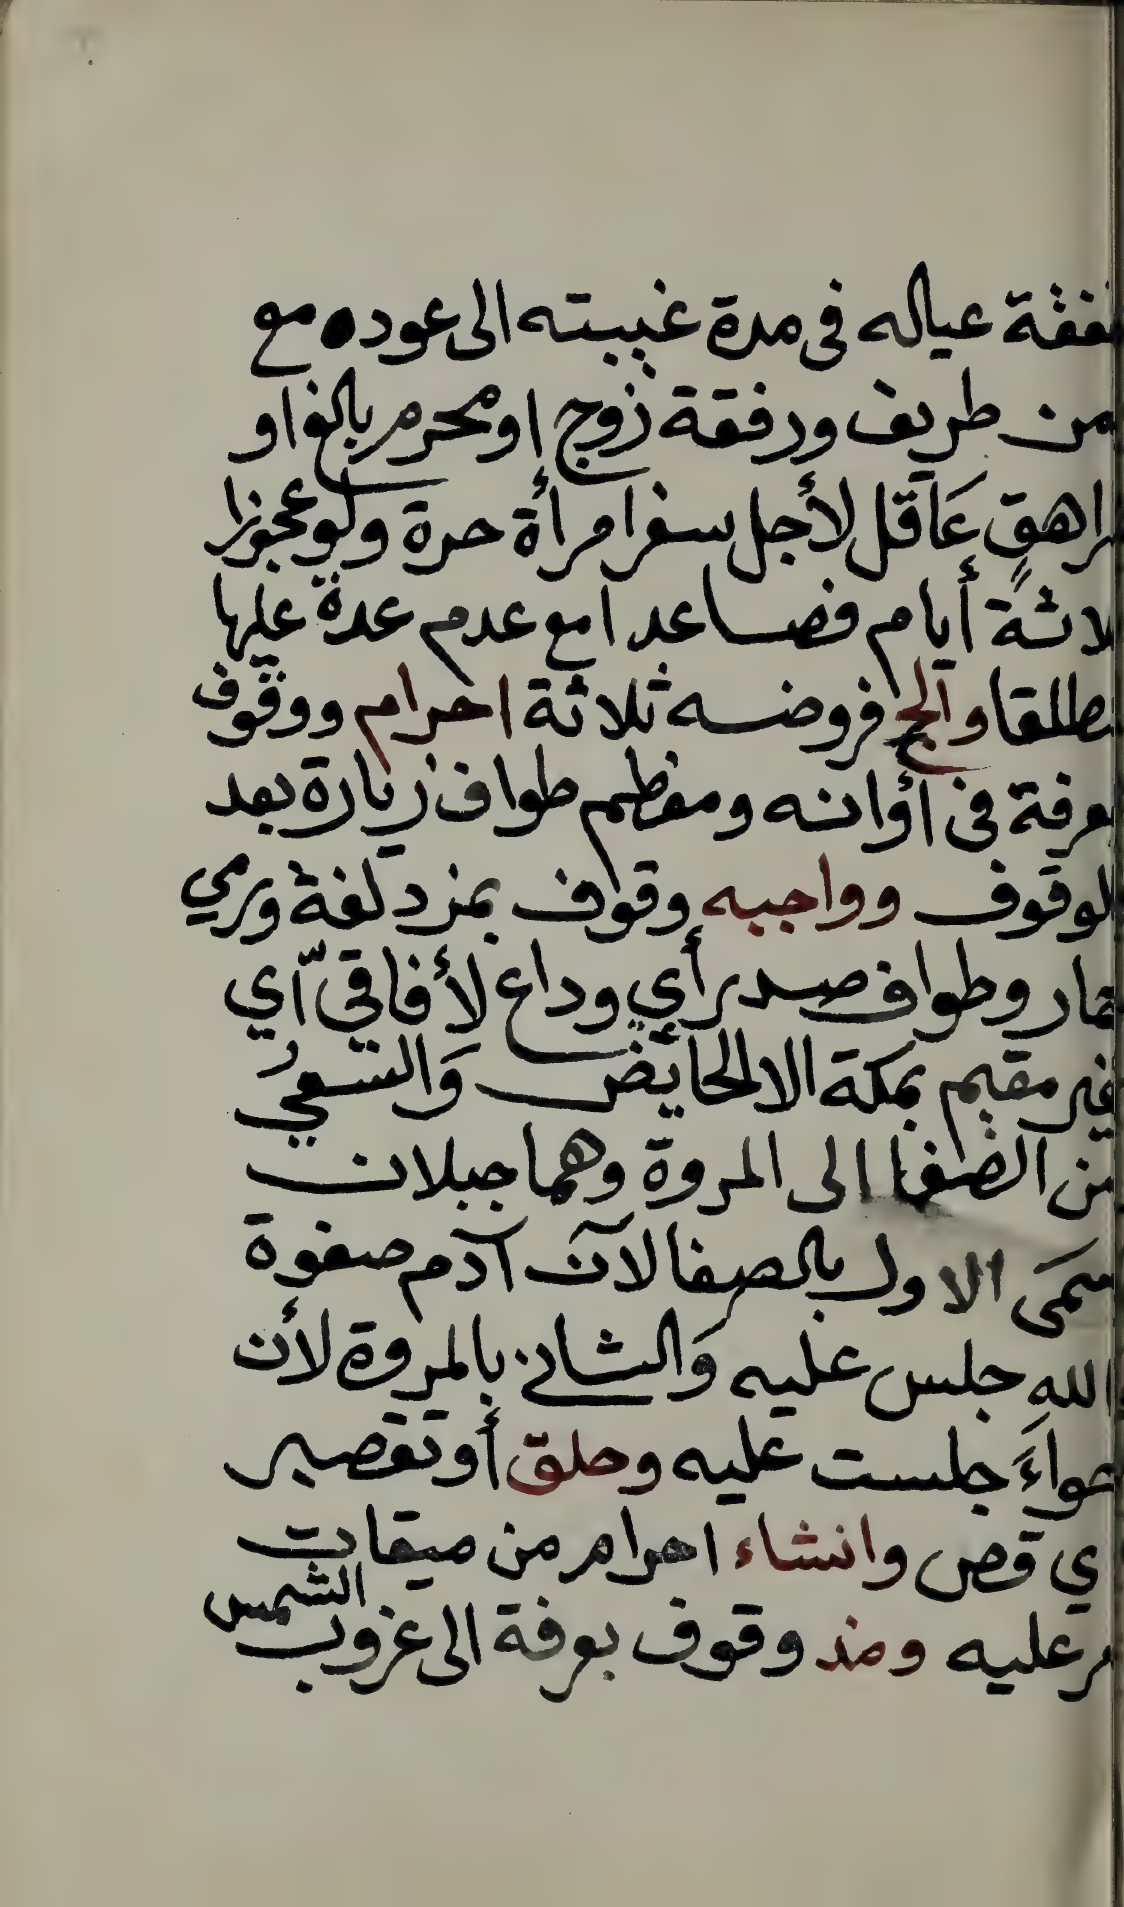 نفقة عياله فى مدة غيبته الى عوده مع
امن طريق ورفقة زوج او محرم بالغ او
مراهقٍ عَاقل لأجل سفر امرأة حرة ولو عجوزا
ثلاثةً أيام فصاعدا مع عدم عدة عليها
مطلقا والحج فروضه ثلاثة احرام ووقوف
بعرفة فى أوانه ومعظم طواف زيارة بعد
الوقوف وواجبه وقوف بمزدلفة ورمي
جمار وطواف صدر أي وداع لأفاقيّ أي
غير مقيم بمكة الا لحائض وَالسَّعيُ
من الصفا الى المروة وهما جبلان
سمَى الاول بالصفا لانَ آدم صفوة
الله جلس عليه وَالثانى بالمروة لأن
حواءَ جلست عليه وحلق أو تقصير
اي قص وانشاء احرام من ميقات
مر عليه ومد وقوف بعرفة الى غروب
الشمس